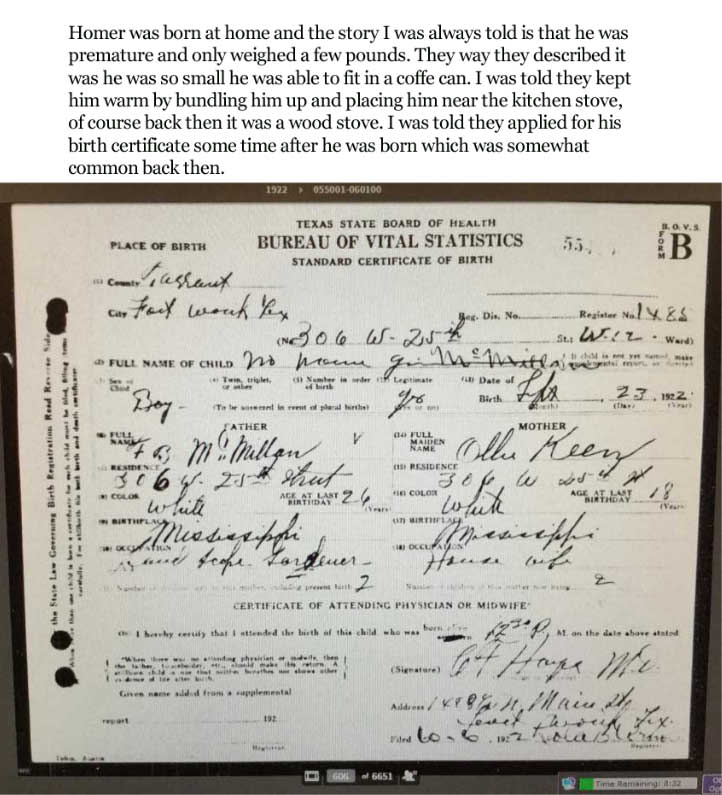 Homer was born at home and the story I was always told is that he was
premature and only weighed a few pounds. They way they described it
was he was so small he was able to fit in a coffe can. I was told they kept
him warm by bundling him up and placing him near the kitchen stove,
of course back then it was a wood stove. I was told they applied for his
birth certificate some time after he was born which was somewhat
common back then.
1922 > 055001-060100
TEXAS STATE BOARD OF HEALTH
B. O. V. S.
PLACE OF BIRTH BUREAU OF VITAL STATISTICS 55 FORM B
STANDARD CERTIFICATE OF BIRTH
County Tarrant
City Fort Worth Tex Reg. Dis. No. Register No. 1485
(No. 306 W- 25th St.; Ward)
FULL NAME OF CHILD No name McMillan
Sex of Child Boy Twin, triplet, or other Number in order of birth Legitimate Yes Date of Birth Sept 23, 1922
(To be answered in event of plural births) (Yes or no) (Month) (Day) (Year)
FATHER MOTHER
FULL NAME McMillan FULL MAIDEN NAME Ollie Keen
RESIDENCE 306 W. 25th Street RESIDENCE 306 W 25th St
COLOR White AGE AT LAST BIRTHDAY 26 (Years) COLOR White AGE AT LAST BIRTHDAY 18 (Years)
BIRTHPLACE Mississippi BIRTHPLACE Mississippi
OCCUPATION Land scape Gardener OCCUPATION House wife
present birth 2 2
CERTIFICATE OF ATTENDING PHYSICIAN OR MIDWIFE*
I hereby certify that I attended the birth of this child, who was born M. on the date above stated
*When there was no attending physician or midwife, then
the father, householder, etc., should make this return. A
stillborn child is one that neither breathes nor shows other
evidence of life after birth.
(Signature)
Given name added from a supplemental
Address N. Main St
report 192
Fort Worth Tex.
Filed 10-6, 1922
Registrar Registrar
the State Law Governing Birth Registration Read Reverse Side
606 of 6651
Time Remaining: 8:32